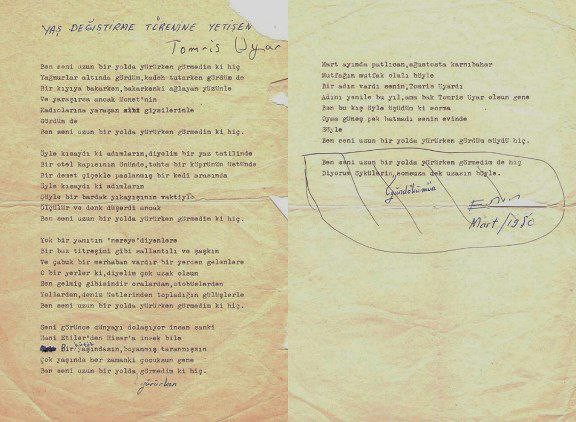 YAŞ DEĞİŞTİRME TÖRENİNE YETİŞEN
Tomris Uyar
Ben seni uzun bir yolda yürürken görmedim ki hiç
Yağmurlar altında gördüm,kadeh tutarken gördüm de
Bir kıyıya bakarken,bakarkenki ağlayan yüzünle
Ve yaraşırsa ancak Monet'nin
Kadınlarına yaraşan giysilerinle
Gördüm de
Ben seni uzun bir yolda yürürken görmedim ki hiç.
Öyle kısaydı ki adımların,diyelim bir yaz tatilinde
Bir otel kapısının önünde,tahta bir köprünün üstünde
Bir demet çiçekle paslanmış bir kedi arasında
Öyle kısaydı ki adımların
Şöyle bir bardak yıkayışının vaktiyle
Ölçülür ve denk düşerdi ancak
Ben seni uzun bir yolda yürürken görmedim ki hiç.
Yok bir yanıtın "nereye"diyenlere
Bir buz titreşimi gibi sallantılı ve şaşkın
Ve çabuk bir merhaban vardır bir yerden gelenlere
O bir yerler ki,diyelim çok uzak olsun
Sen gelmiş gibisindir oralardan,otobüslerden
Yollardan,deniz üstlerinden topladığın gülüşlerle
Ben seni uzun bir yolda yürürken görmedim ki hiç.
Seni görünce dünyayı dolaşıyor insan sanki
Hani Etiler'den Hisar'a insek bile
Bir yaşındasın,boyanmış taranmışsın
Çok yaşında her zamanki çocuksun gene
Ben seni uzun bir yolda görmedim ki hiç.
yürürken
Mart ayında patlıcan,ağustosta karnıbahar
Mutfağın mutfak olalı böyle
Bir adın vardı senin,Tomris Uyardı
Adını yenile bu yıl,ama bak Tomris Uyar olsun gene
Ben bu kış öyle üşüdüm ki sorma
Oysa güneş pek batmadı senin evinde
Söyle
Ben seni uzun bir yolda yürürken gördüm müydü hiç.
Ben seni uzun bir yolda yürürken görmedim de hiç
Diyorum öykülerin,sonsuza dek uzasın böyle.
Gündökümüne
Mart/1980